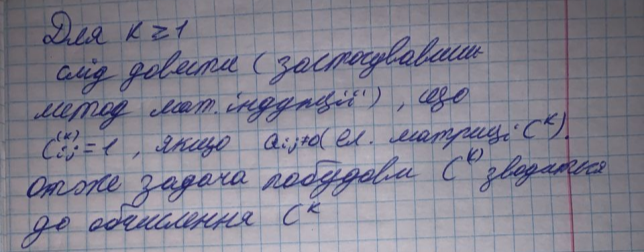 Для k ≥ 1
слід довести (застосувавши
метод мат. індукції), що
C⁽ᵏ⁾ᵢⱼ = 1, якщо aᵢⱼ≠0 (ел. матриці Cᵏ).
Отже задача побудови C⁽ᵏ⁾ зводиться
до обчислення Cᵏ